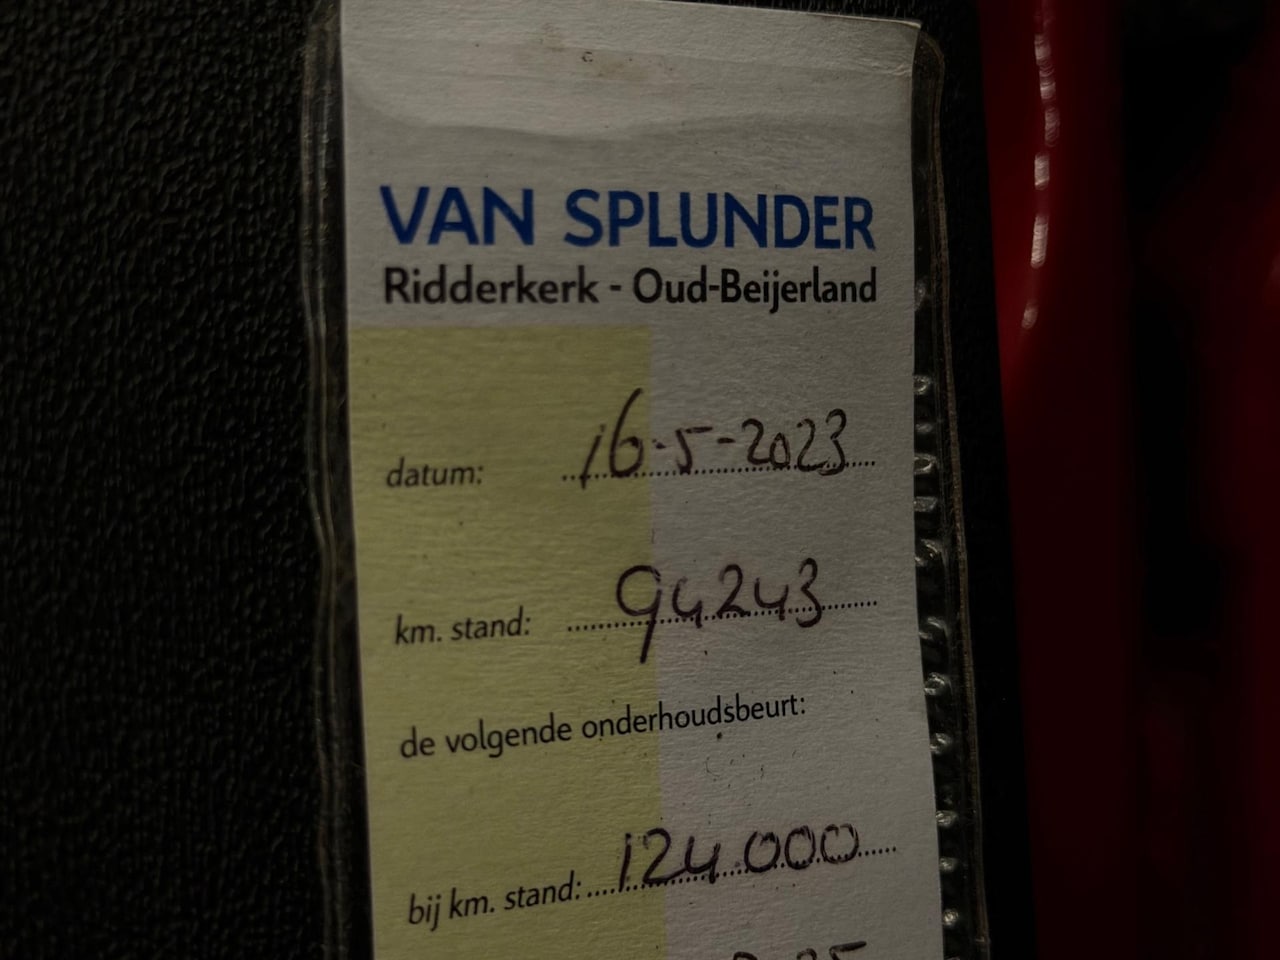 VAN SPLUNDER
Ridderkerk - Oud-Beijerland
datum: 16-5-2023
km. stand: 94243
de volgende onderhoudsbeurt:
bij km. stand: 124.000